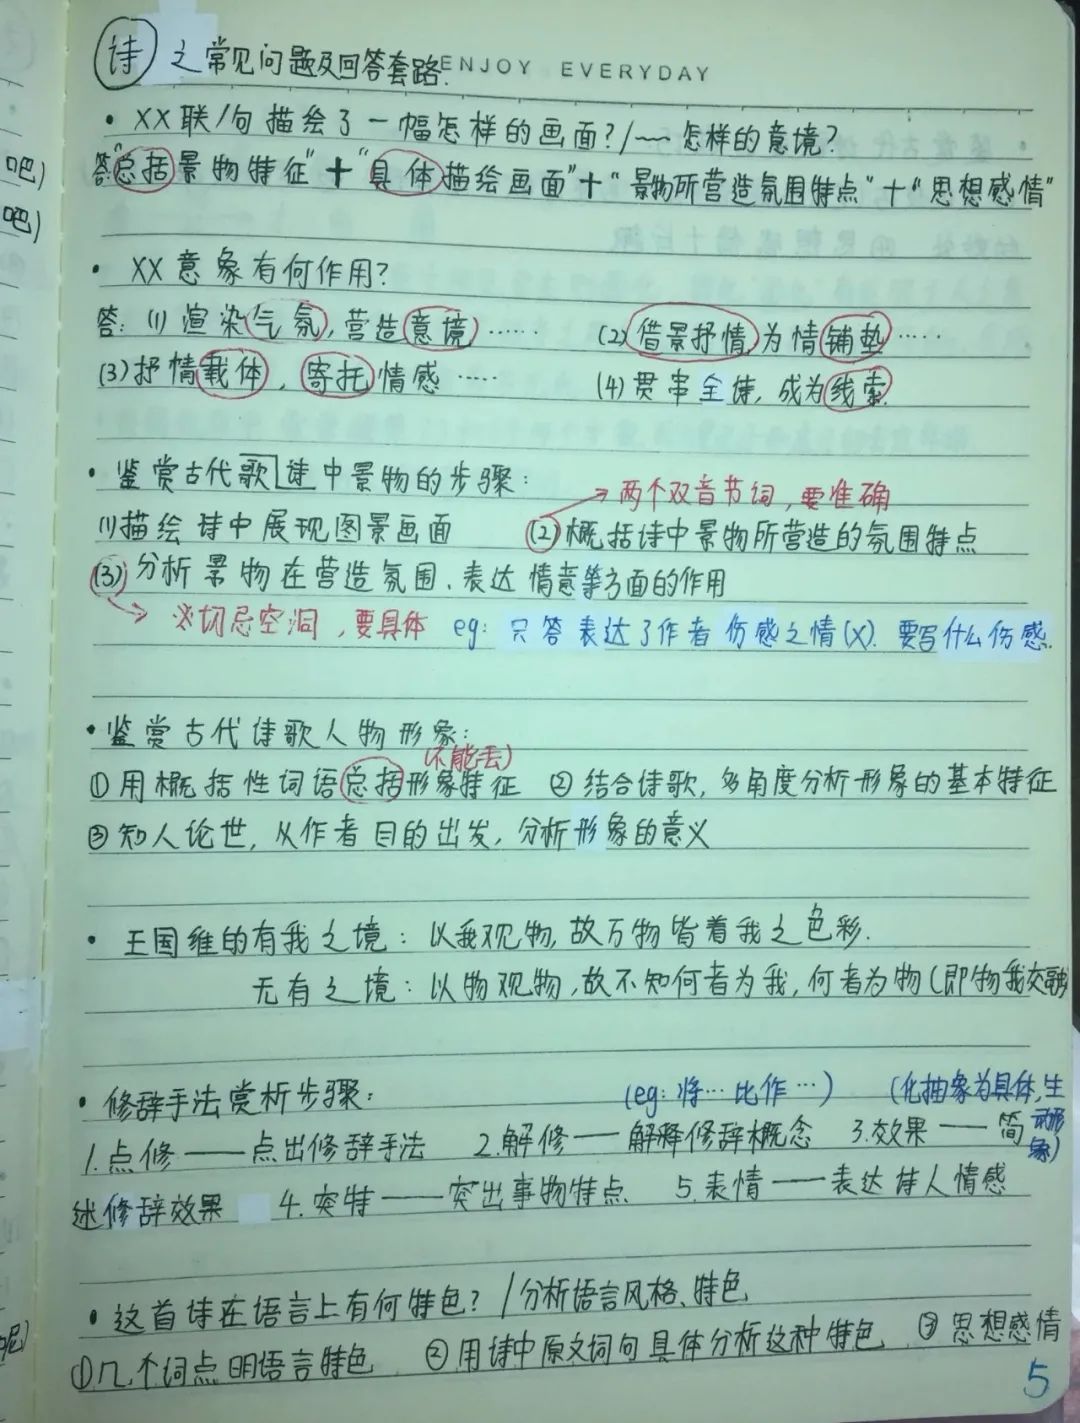 诗之常见问题及回答套路. ENJOY EVERYDAY
吧)
吧)
• XX联/句描绘了一幅怎样的画面?/～怎样的意境?
答"总括景物特征"+"具体描绘画面"+"景物所营造氛围特点"+"思想感情"
• XX意象有何作用?
答: (1)渲染气氛,营造意境…… (2)借景抒情,为情铺垫……
(3)抒情载体,寄托情感…… (4)贯串全诗,成为线索.
• 鉴赏古代歌诗中景物的步骤:
→两个双音节词,要准确
(1)描绘诗中展现图景画面 (2)概括诗中景物所营造的氛围特点
(3)分析景物在营造氛围、表达情意等方面的作用
→※切忌空洞,要具体 eg: 只答表达了作者伤感之情(X). 要写什么伤感.
• 鉴赏古代诗歌人物形象:
(不能丢)
①用概括性词语总括形象特征 ②结合诗歌,多角度分析形象的基本特征
③知人论世,从作者目的出发,分析形象的意义
• 王国维的有我之境: 以我观物,故万物皆着我之色彩.
无有之境: 以物观物,故不知何者为我,何者为物(即物我交融)
• 修辞手法赏析步骤: (eg: 将…比作…) (化抽象为具体,生动形象)
1.点修——点出修辞手法 2.解修——解释修辞概念 3.效果——简
述修辞效果 4.突特——突出事物特点. 5.表情——表达诗人情感
• 这首诗在语言上有何特色?/分析语言风格、特色
①几个词点明语言特色 ②用诗中原文词句具体分析这种特色 ③思想感情
5